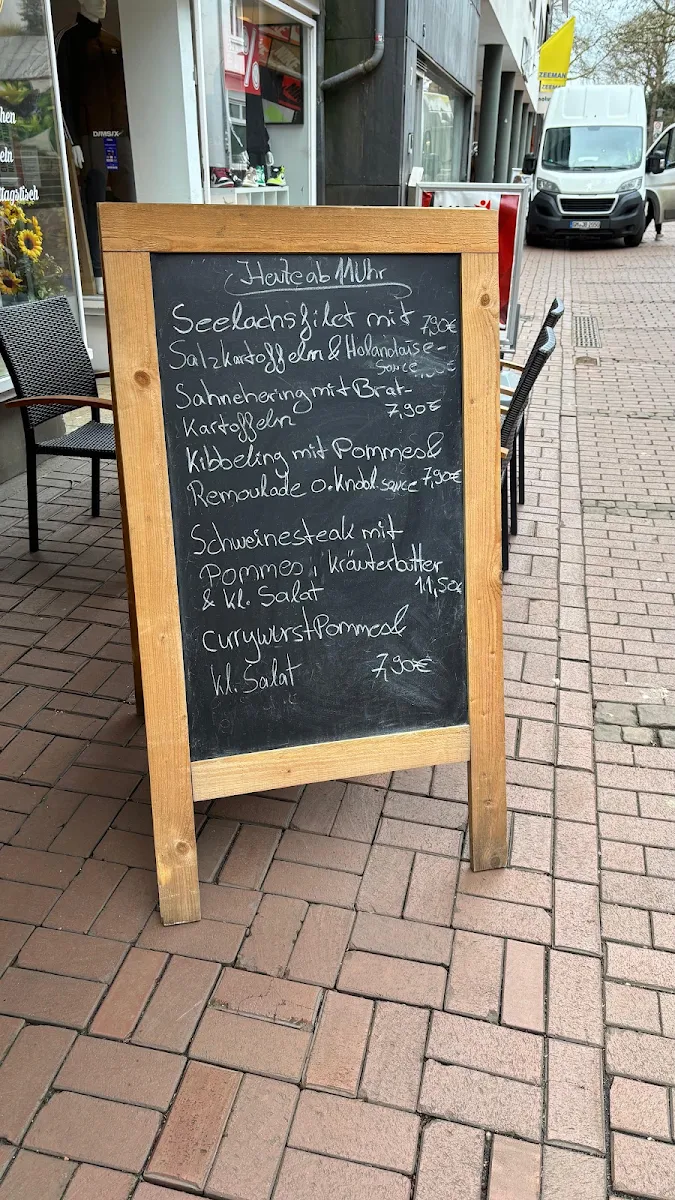 Heute ab 11 Uhr
Seelachsfilet mit 7,90€
Salzkartoffeln & Holandaise-
Sauce
Sahnehering mit Brat-
Kartoffeln 7,90€
Kibbeling mit Pommes &
Remoulade o. Knobl. sauce 7,90€
Schweinesteak mit
Pommes, Kräuterbutter
& kl. Salat 11,50€
Currywurst Pommes &
kl. Salat 7,90€
ZEEMAN
ZEEMAN